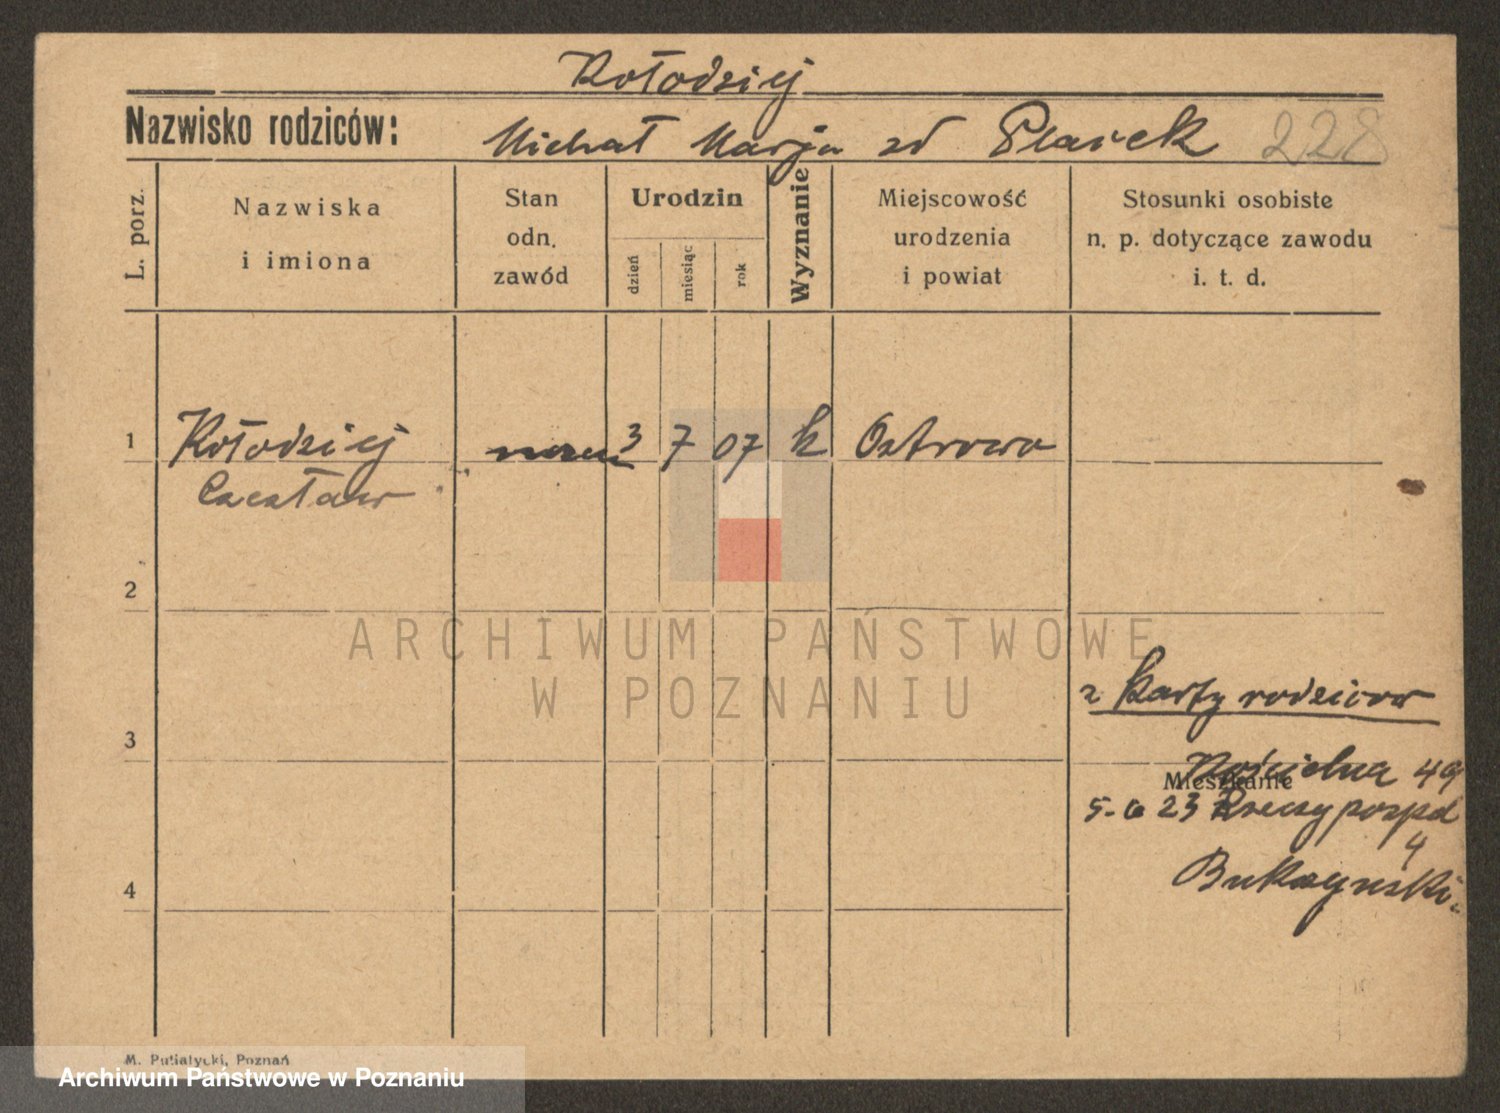 Kołodziej
Nazwisko rodziców: Michał Marja zd Ptasiek 228
L. porz.
Nazwiska
i imiona
Stan
odn.
zawód
Urodzin
dzień
miesiąc
rok
Wyznanie
Miejscowość
urodzenia
i powiat
Stosunki osobiste
n. p. dotyczące zawodu
i. t. d.
1 Kołodziej 3 7 07 k Ostrowo
Czesław
2
3
4
z karty rodziców
Mieszkanie
Kościelna 49
5. 6 23 Rzeczypospol
4
Bukzyński.
M. Putiatycki, Poznań
ARCHIWUM PAŃSTWOWE
W POZNANIU
Archiwum Państwowe w Poznaniu